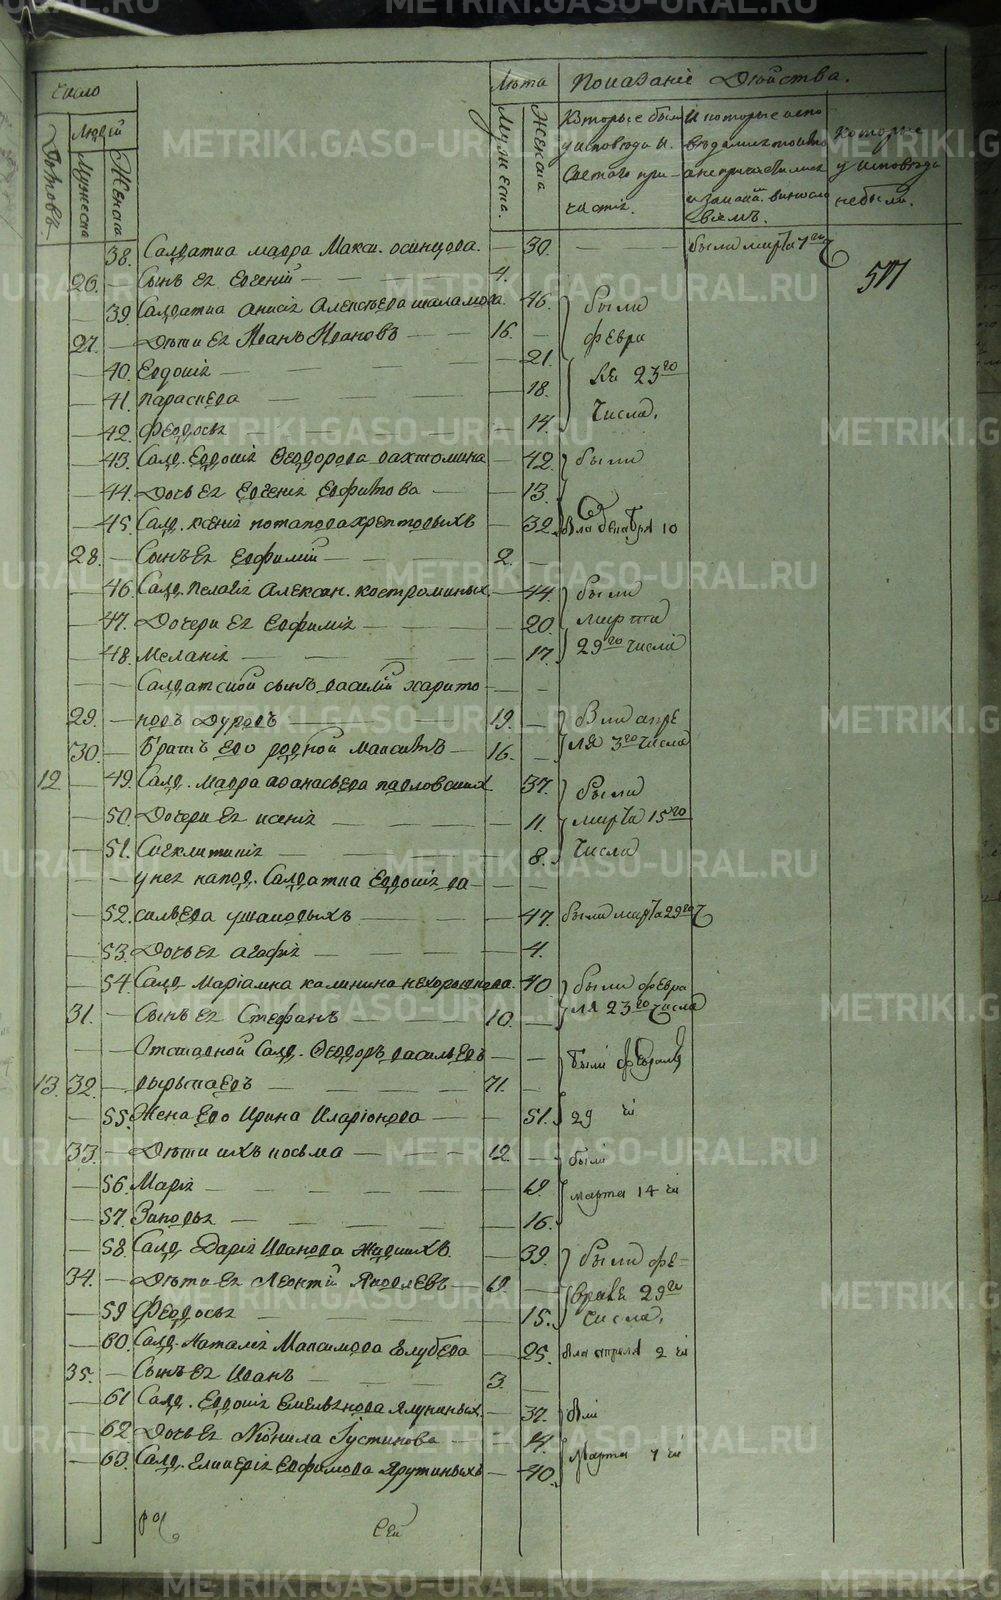 METRIKI.GASO-URAL.RU
Число
Лѣта Показанiе Дѣйства.
Дворовъ Людей Мужеска Женска
Мужеска. Женска
Которые были у исповеди и Святаго причастiя.
И которые
Которые у исповеди небыли.
38. Салдатка мавра Макси. осинцова. — 30. были марта 7го
517
26. — Сынъ Ея Евгенiй — 4.
39. Салдатка Анисiя Алексѣева шаламова 46. были
27. — Дѣти Ея Иванъ Ивановъ — 16. — февра
40. Евдокiя — 21. ля 23го
41. параскева — 18.
42. Феодосья — 14. Числа,
43. Салд. Евдокiя Феодорова вахтомина — 42. были
44. Дочь Ея Евгенiя Евфимова — 13.
45. Салд. ксенiя потапова хрептовыхъ — 32. декабря 10
28. — Сынъ Ея Евфимiй — 2. —
46. Салд. Пелагiя Алексан. костроминых — 44. были
47. Дочери Ея Евфимiя — 20. марта
48. Меланiя — 17. 29го числа
Салдатской сынъ василiй харито
29. — новъ Дуровъ — 19. — апре
30. — Братъ Его родной Максимъ — 16. — ля 3го числа
12 — 49. Салд. Мавра афанасьева павловских 37. были
50. Дочери Ея ксенiя — 11. марта 15го
51. Сигклитикiя — 8. числа
у нея напод. Салдатка Евдокiя ва
52. сильева ушаковыхъ — 47. были марта 29го
53. Дочь Ея агафiя — 4.
54. Салд. Марiамна калинина нехорошкова. 40 были февра
31. — Сынъ Ея Стефанъ — 10. — ля 23го числа
Отставной Салд. Феодоръ васильевъ — — были февраля
13. 32. — 71.
55. Жена Его Ирина Иларiонова — 51. 29
33. — Дѣти ихъ козьма — 12. — были
56. Марiя — 19. марта 14
57. Зиновья — 16.
58. Салд. Дарiя Иванова Жадиихъ — 39. были фе-
34. — Дѣти Ея Леонтiй Яковлевъ — 19. — враля 29го
59 Феодосья — 15. числа,
60. Салд. Наталiя Максимова Голубева — 25. апреля 2
35. — Сынъ Ея Иванъ — 3. —
61 Салд. Евдокiя Емельянова Ялуниных. — 37.
62 Дочь Ея Неонила Iустинова — 14. Марта 7
63. Салд. Гликерiя Евфимова Ярутиныхъ — 40.